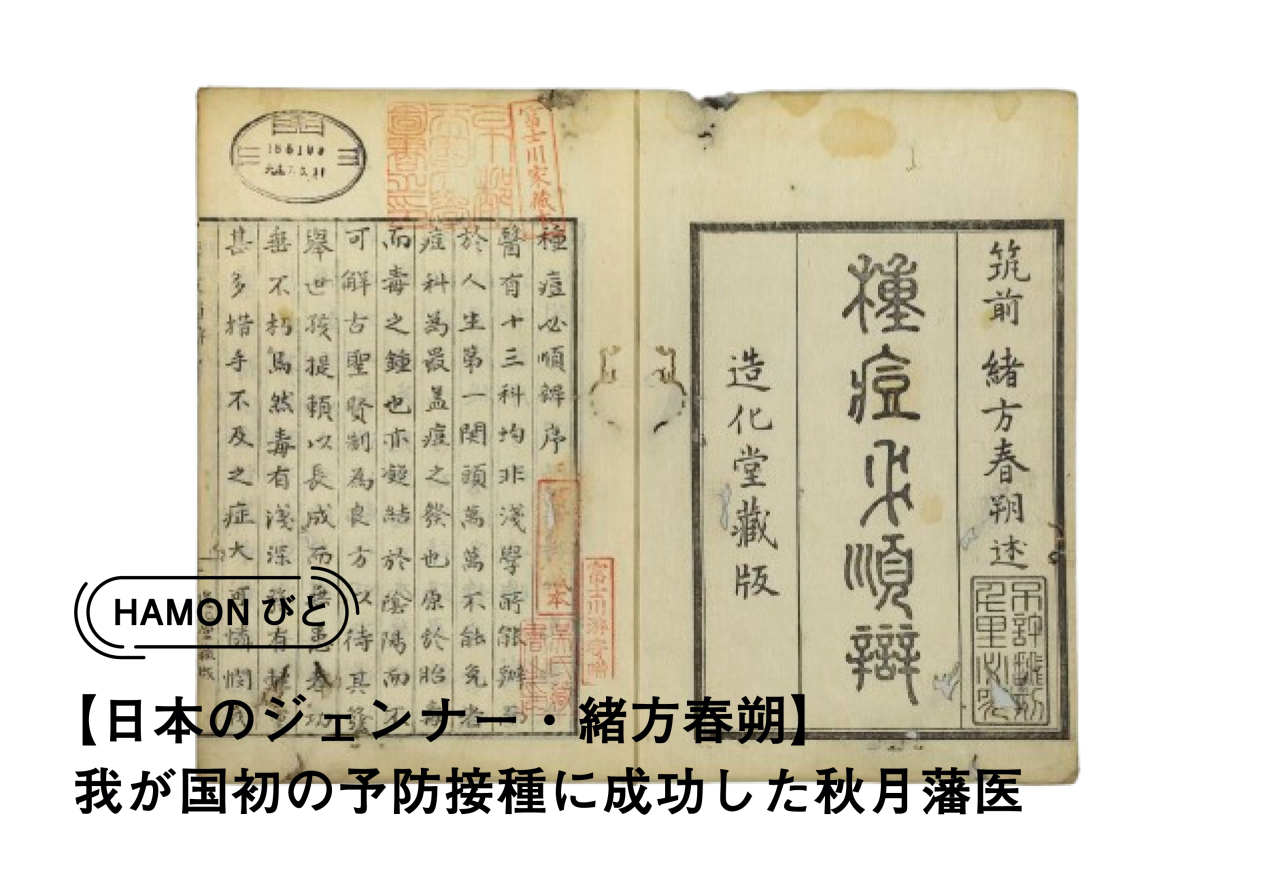 筑前 緒方春朔述
種痘必順辯
造化堂藏版
富士川家藏本
種痘必順辨序
醫有十三科均非淺學所能辦而
於人生第一関頭萬萬不能免者
痘科為最盖痘之發也原於胎毒
而毒之鍾也亦凝結於陰陽而不
可解古聖賢制為良方以待其
舉世孩提頼以長成而無患
垂不朽焉然毒有淺深有
甚多措手不及之症大可憐憫
富士川游寄贈
大正7.3.31
HAMONびと
【日本のジェンナー・緒方春朔】
我が国初の予防接種に成功した秋月藩医